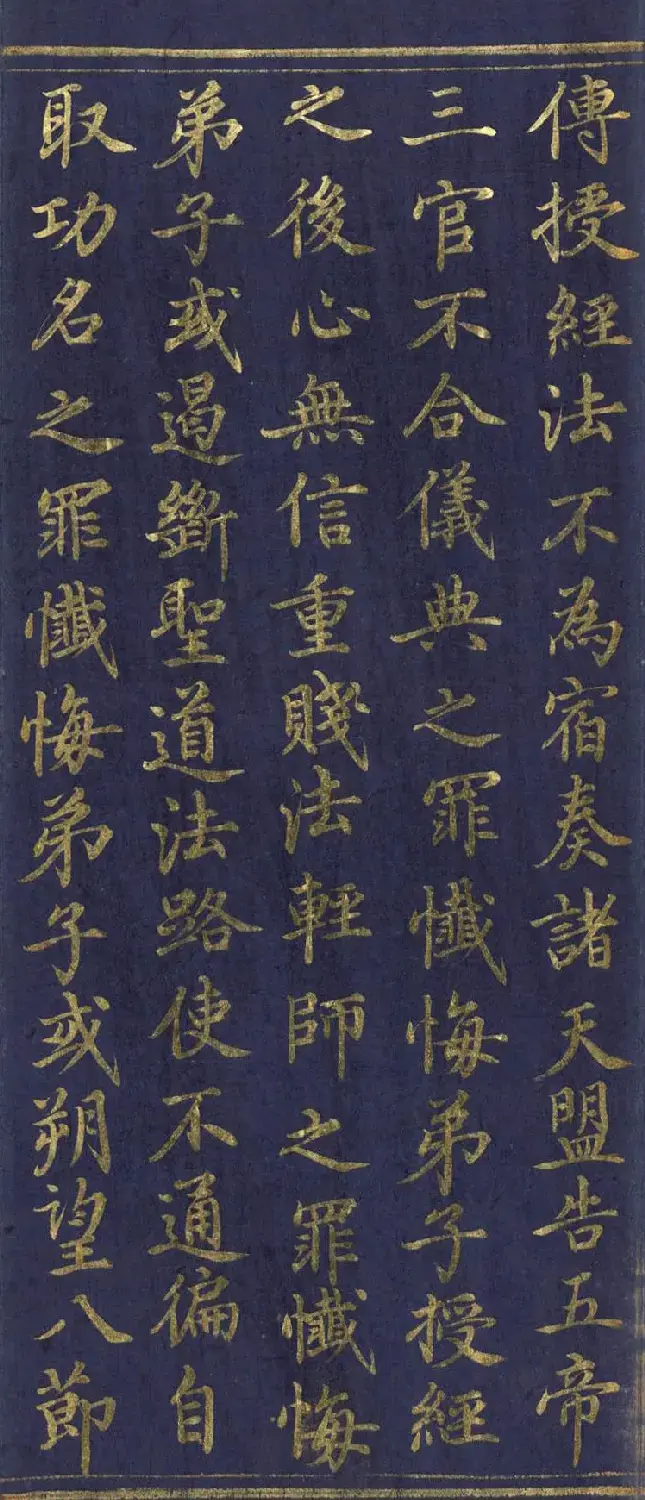 傳授經法不為宿奏諸天盟告五帝
三官不合儀典之罪懺悔弟子授經
之後心無信重賤法輕師之罪懺悔
弟子或遏斷聖道法路使不通偏自
取功名之罪懺悔弟子或朔望八節